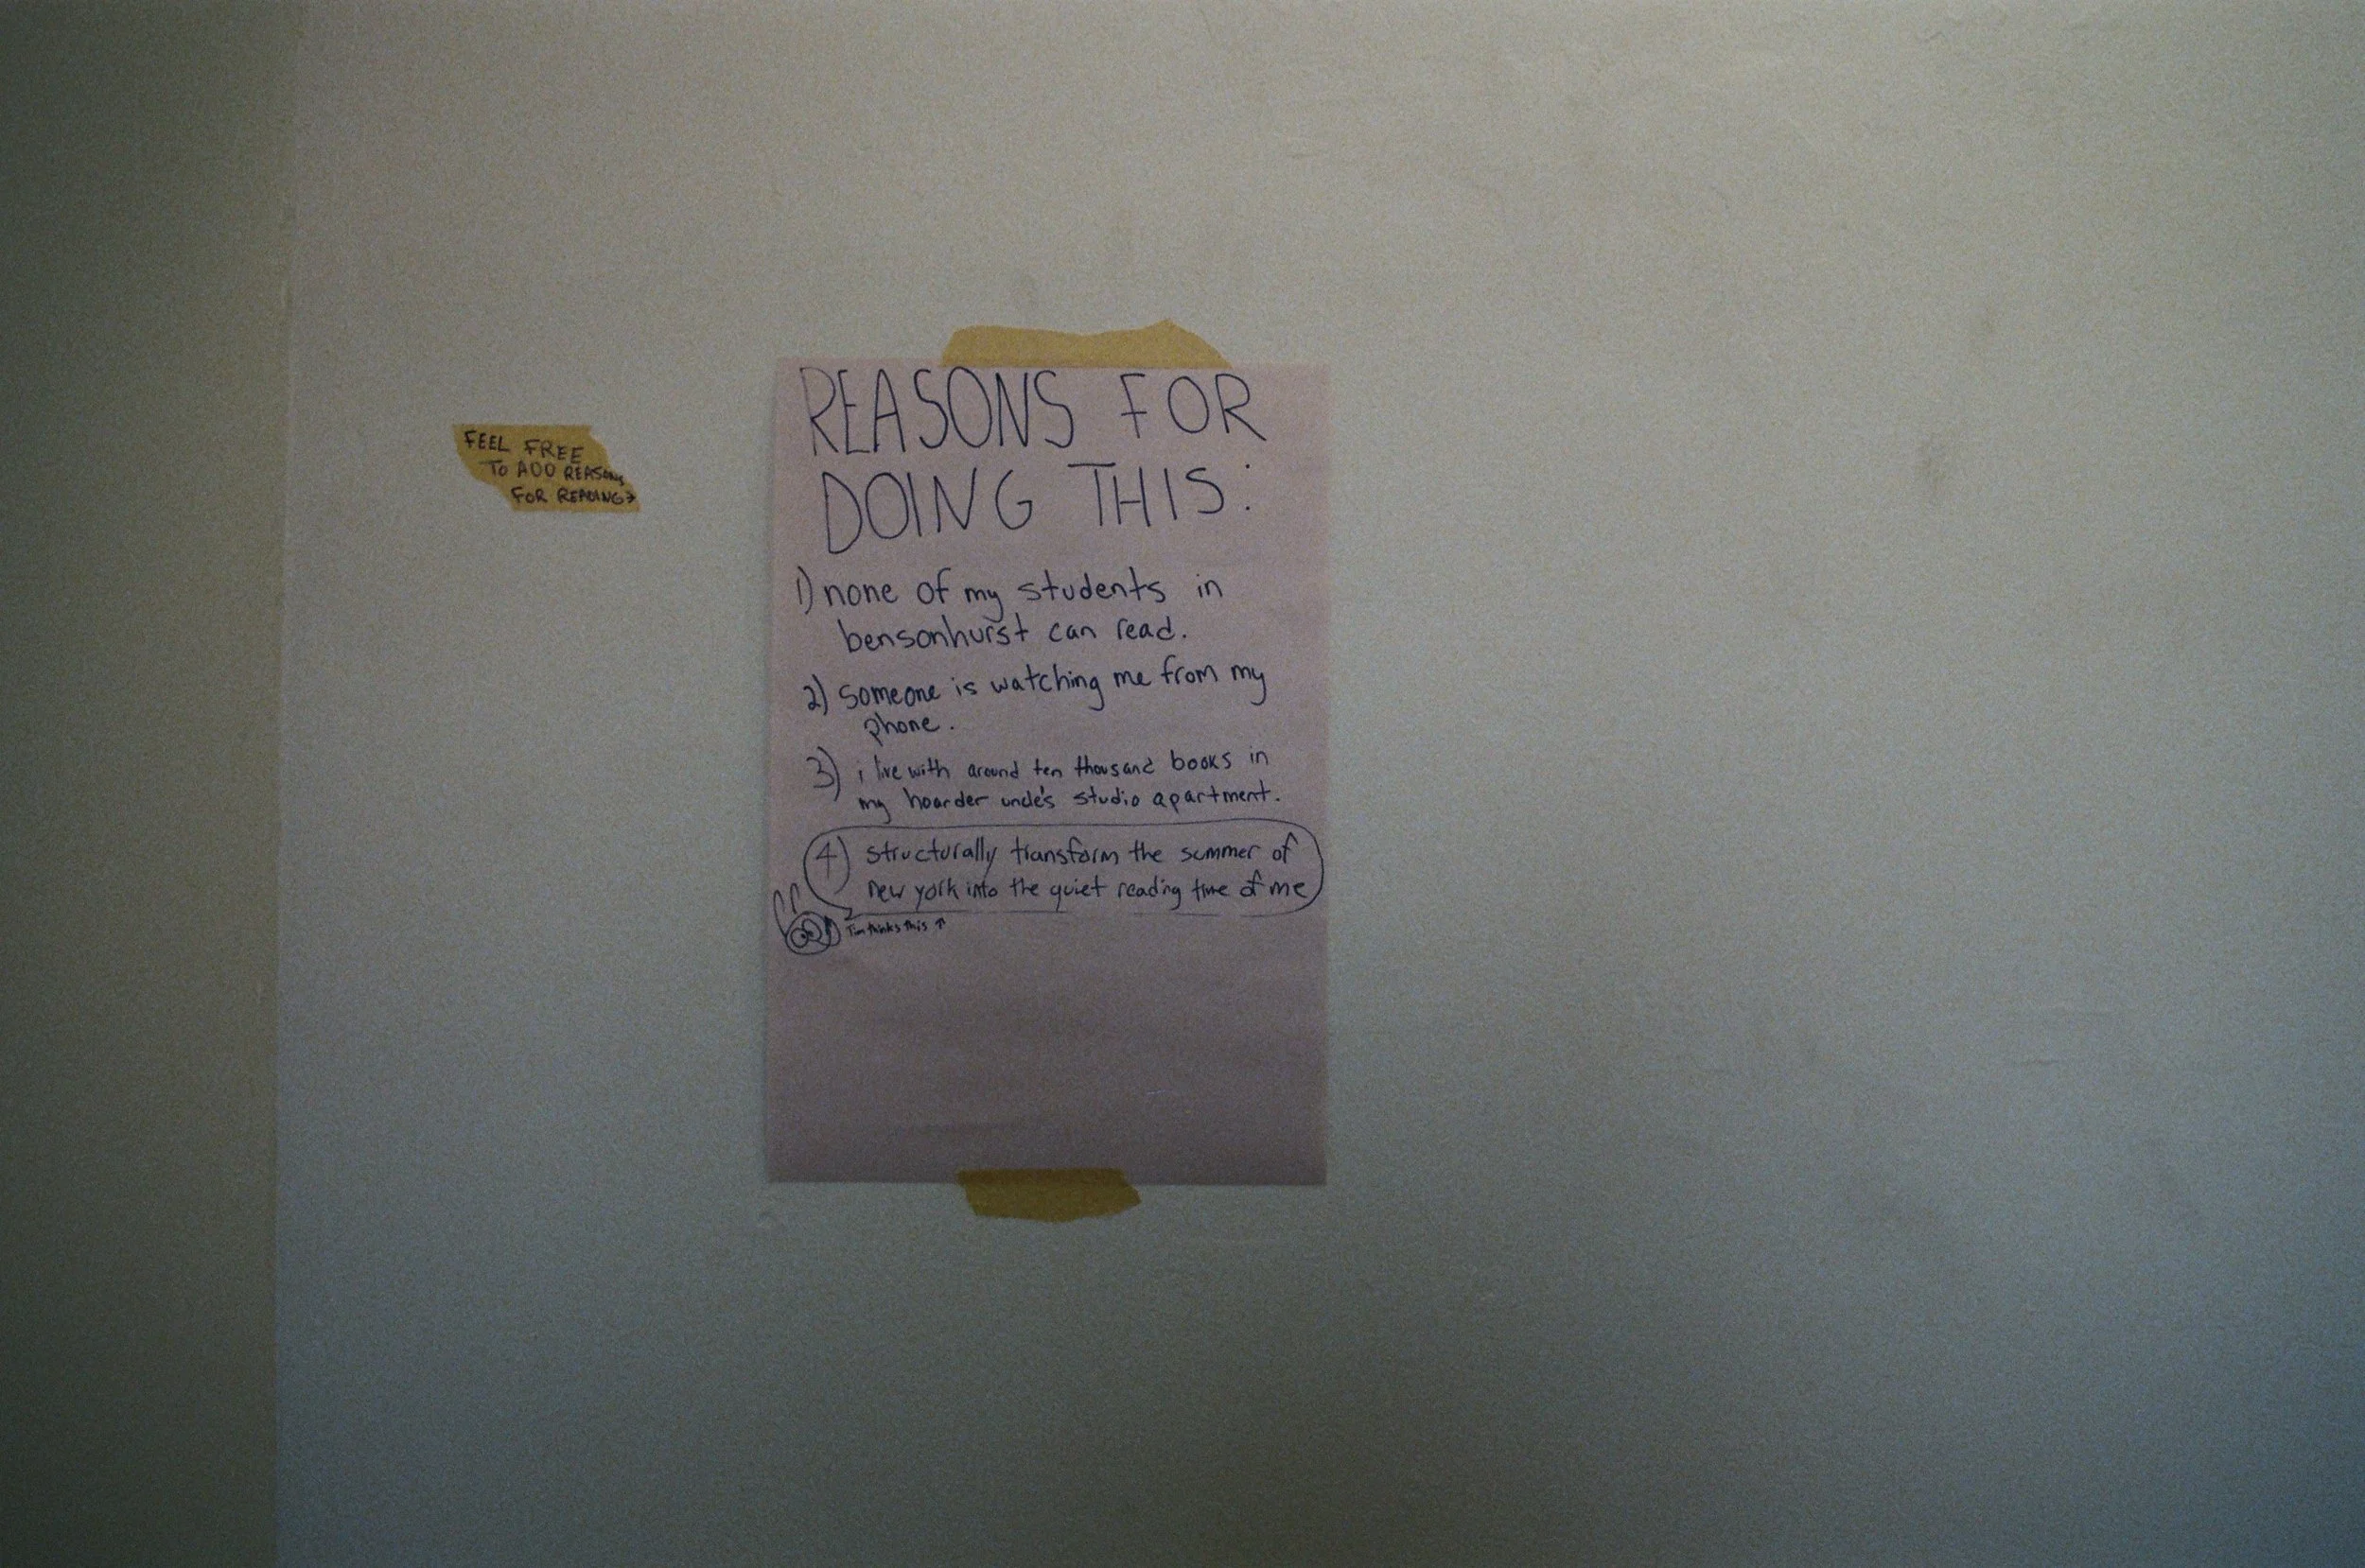 FEEL FREE
TO ADD REASONS
FOR READING→
REASONS FOR
DOING THIS:
1) none of my students in
bensonhurst can read.
2) someone is watching me from my
phone.
3) i live with around ten thousand books in
my hoarder uncle's studio apartment.
4) structurally transform the summer of
new york into the quiet reading time of me
Tim thinks this ↑